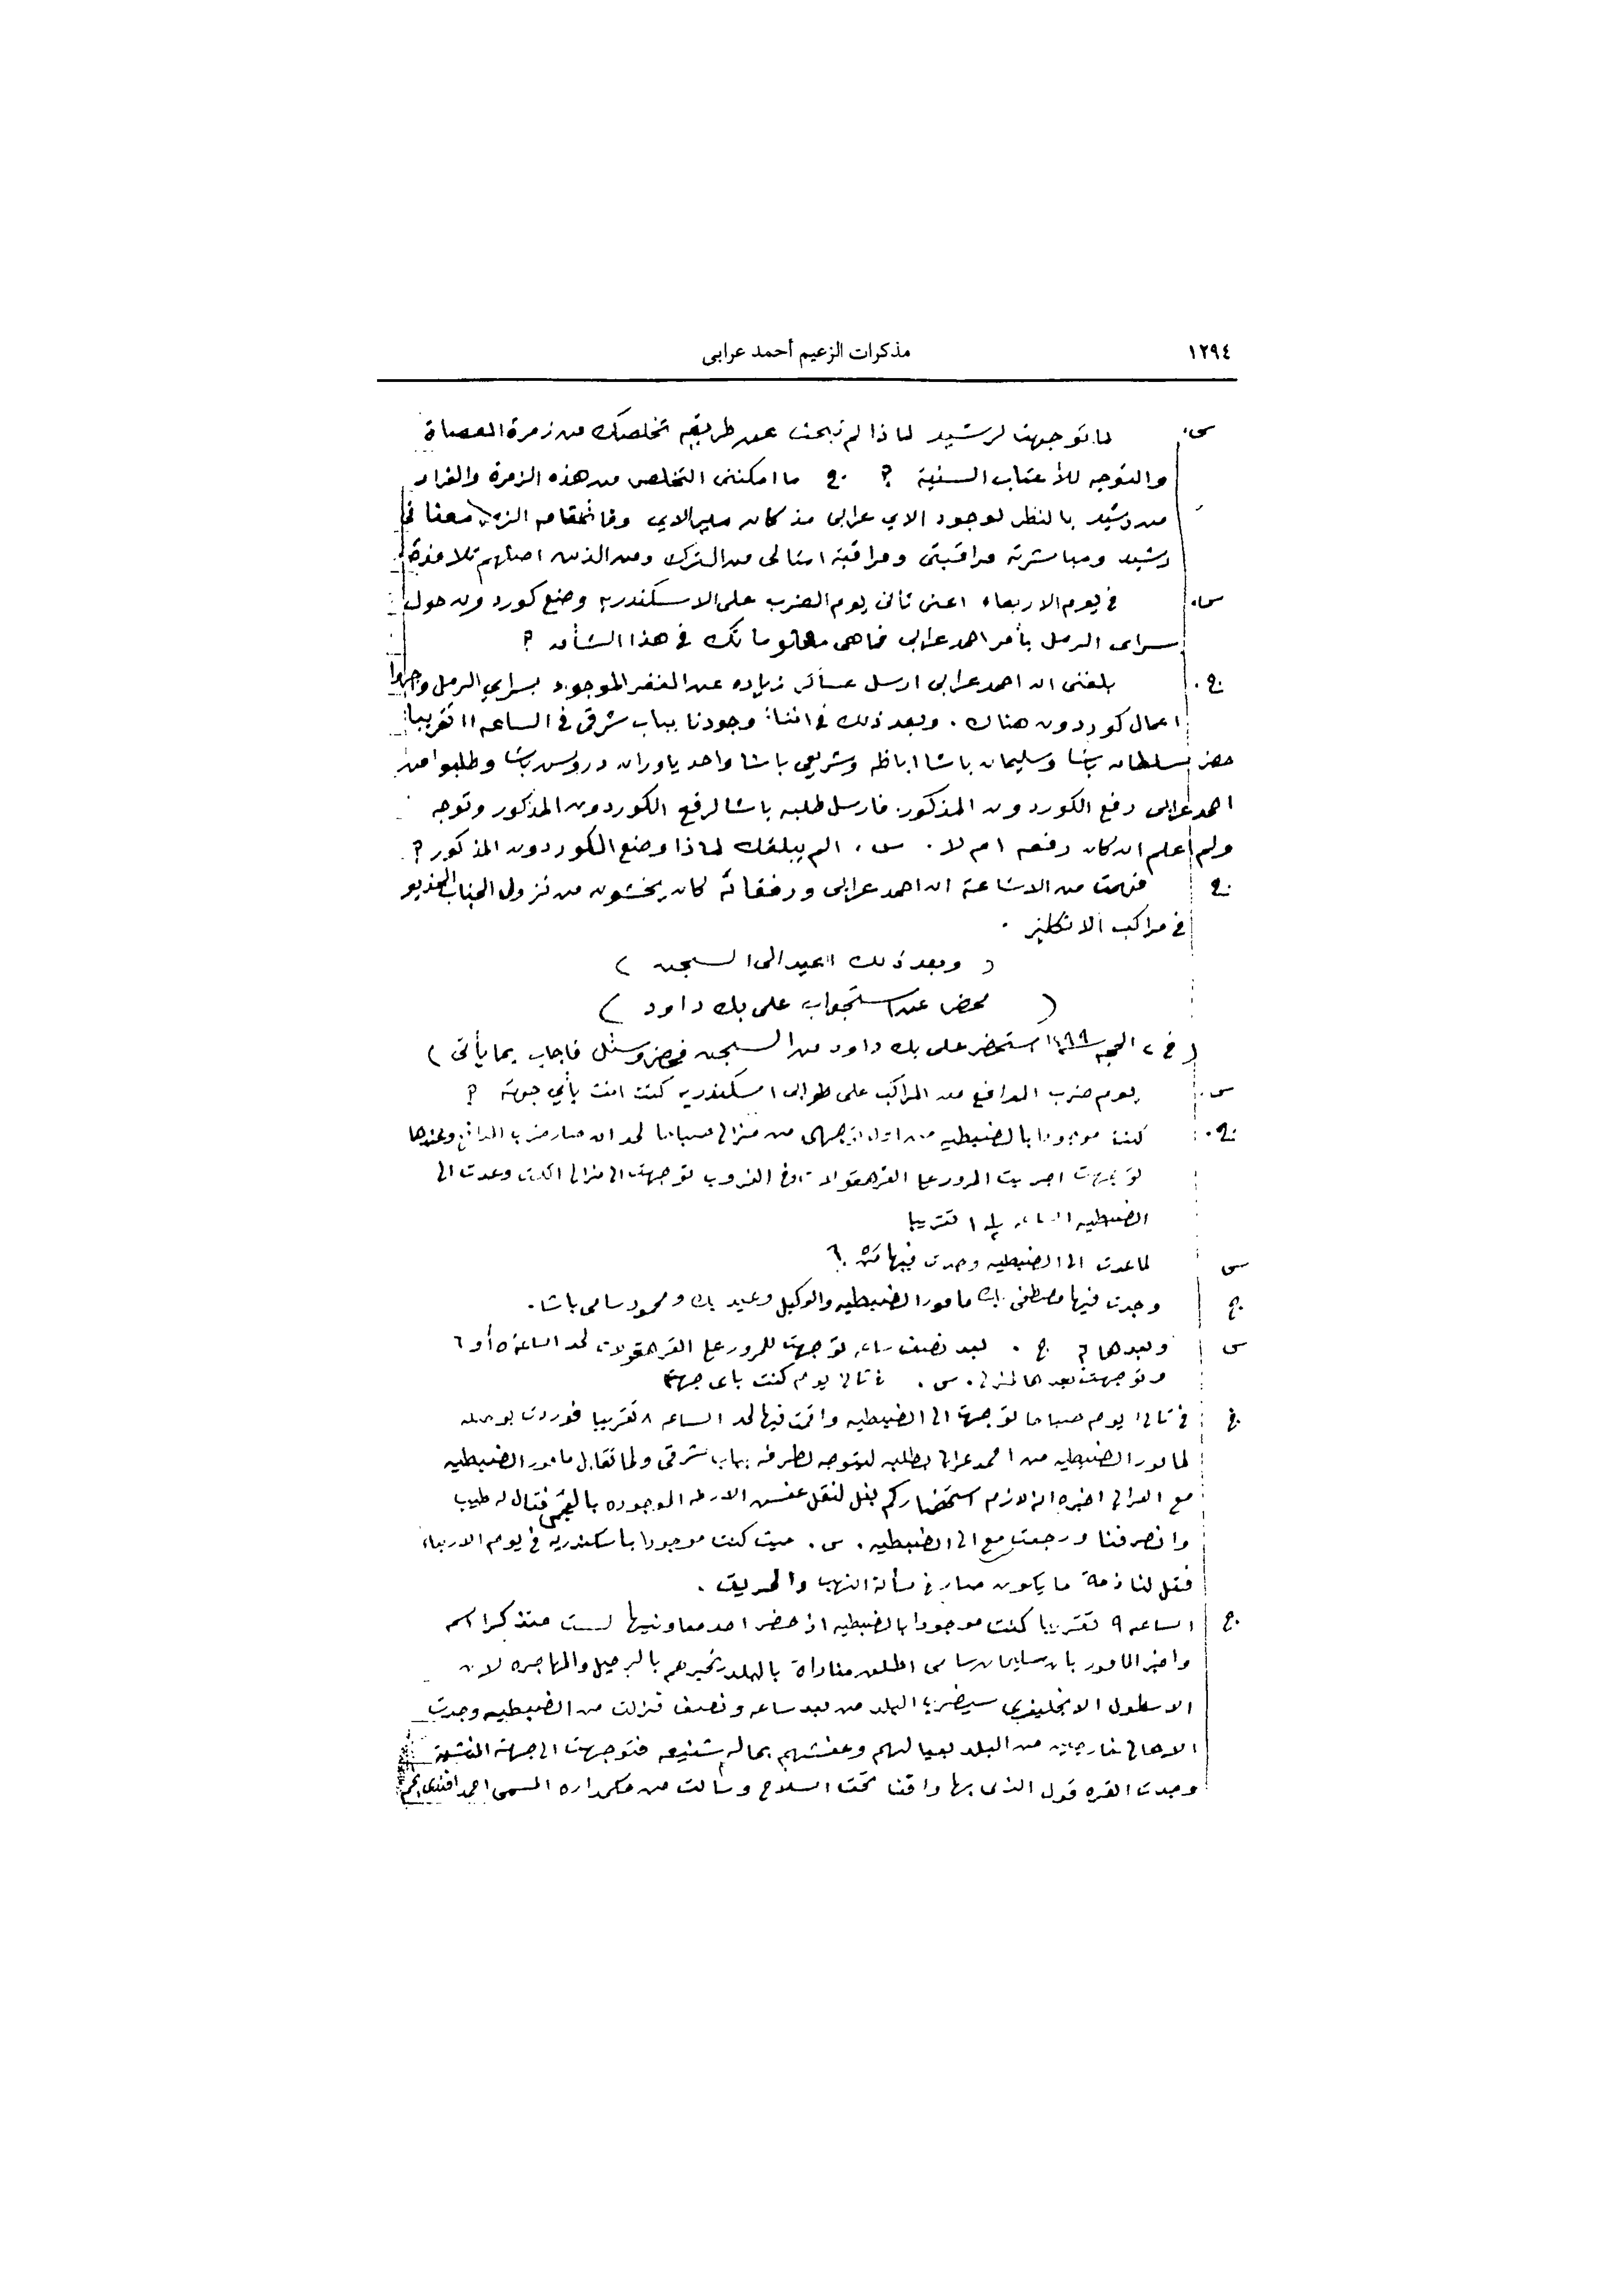 ١٢٩٤
مذكرات الزعيم أحمد عرابى
س. لما توجهت لرشيد لماذا لم تبحث عن طريقه تخلصك من زمرة العصاة
والتوجه للأعتاب السنية ؟ ج ما امكننى التخلص من هذه الزمرة والفرار
من رشيد بالنظر لوجود الاى عرابى مذ كان ميرالاي وقائمقامه معنا فى
رشيد ومباشرته مراقبتى ومراقبة امثالى من الترك ومن الذين اصلهم تلامذة
س. فى يوم الاربعاء اعنى ثانى يوم الضرب على الاسكندريه وضع كوردون حول
سراى الرمل بأمر احمد عرابى فما هى معلوماتك فى هذا الشأن ؟
ج. بلغنى ان احمد عرابى ارسل عساكر زياده عن الغفر الموجود بسراي الرمل واجروا
اعمال كوردون هناك . وبعد ذلك فى اثناء وجودنا بباب شرقى فى الساعه ١١ تقريبا
حضر سلطان باشا وسليمان باشا اباظه وشريعى باشا واحد ياوران درويش باشا وطلبوا من
احمد عرابى رفع الكوردون المذكور. فارسل طلبه باشا لرفع الكوردون المذكور وتوجه
ولم اعلم ان كان رفعه ام لا . س . الم يبلغك لماذا وضع الكوردون المذكور ؟
ج فهمت من الاشاعة ان احمد عرابى ورفقائه كان يخشون من نزول الجناب الخديو
فى مراكب الانكليز .
( وبعد ذلك اعيد الى السجن )
( محضر عن استجواب على بك داود )
( فى ٢ الحجه ١٢٩٩ استحضر على بك داود من السجن فحضر وسئل فاجاب بما يأتى )
س. يوم ضرب المدافع من المراكب على طوابى اسكندريه كنت انت بأي جهة ؟
ج. كنت موجودا بالضبطيه من منزلى صباحا لحد ان صار ضرب المدافع وعندها
توجهت اجريت المرور على القرهقولات وفى الغروب توجهت الى منزلى وعدت الى
الضبطيه الساعه تقريبا
س لما عدت الى الضبطيه وجدت فيها من ؟
ج وجدت فيها مصطفى بك مامور الضبطيه والوكيل وعيد بك ومحمود سامى باشا .
س وبعدها ؟ ج . بعد نصف ساعه توجهت للمرور على القرهقولات لحد الساعة ٥ أو ٦
وتوجهت بعدها لمنزلى . س . فى ثانى يوم كنت باى جهة
ج فى ثانى يوم صباحا توجهت الى الضبطيه واقمت فيها لحد الساعه ٨ تقريبا فوردت بوصله
لمامور الضبطيه من احمد عرابى بطلبه ليتوجه لطرفه بباب شرقى ولما تقابل مامور الضبطيه
مع العرابى اخبره انه لازم استحضار كم بغل لنقل عفش الارطه الموجوده فقال له طيب
وانصرفنا ورجعت مع الى الضبطيه . س . حيث كنت موجودا باسكندريه فى يوم الاربعاء
فقل لنا ذمة ما يكون صار فى مسألة النهب والحريق .
ج الساعه ٩ تقريبا كنت موجودا بالضبطيه اذ حضر احد معاونيها لست متذكرا اسمه
واخبر المامور بان سليمان سامى اطلق مناداة بالبلد يخبرهم بالرحيل والمهاجره لان
الاسطول الانجليزي سيضرب البلد من بعد ساعه ونصف فنزلت من الضبطيه وجدت
الاهالى خارجين من البلد بعيالهم وعفشهم بحاله شنيعه فتوجهت الى جهة المنشية
وجدت القره قول الذى بها واقفا تحت السلاح وسألت من حكمداره المسمى احمد افندى